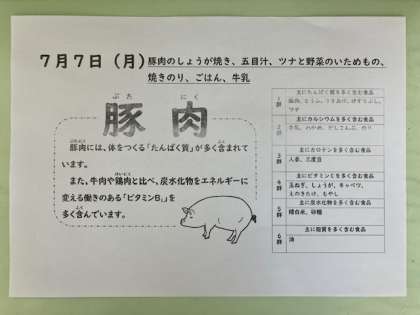 7月7日（月）豚肉のしょうが焼き、五目汁、ツナと野菜のいためもの、
焼きのり、ごはん、牛乳
ぶた にく
豚 肉
豚肉には、体をつくる「たんぱく質」が多く含まれて
います。
また、牛肉や鶏肉と比べ、炭水化物をエネルギーに
変える働きのある「ビタミンB₁」を
多く含んでいます。
1群
主にたんぱく質を多く含む食品
2群
主にカルシウムを多く含む食品
3群
主にカロテンを多く含む食品
人参、三度豆
4群
主にビタミンCを多く含む食品
玉ねぎ、しょうが、キャベツ、
えのきたけ、もやし
5群
主に炭水化物を多く含む食品
精白米、砂糖
6群
主に脂質を多く含む食品
油